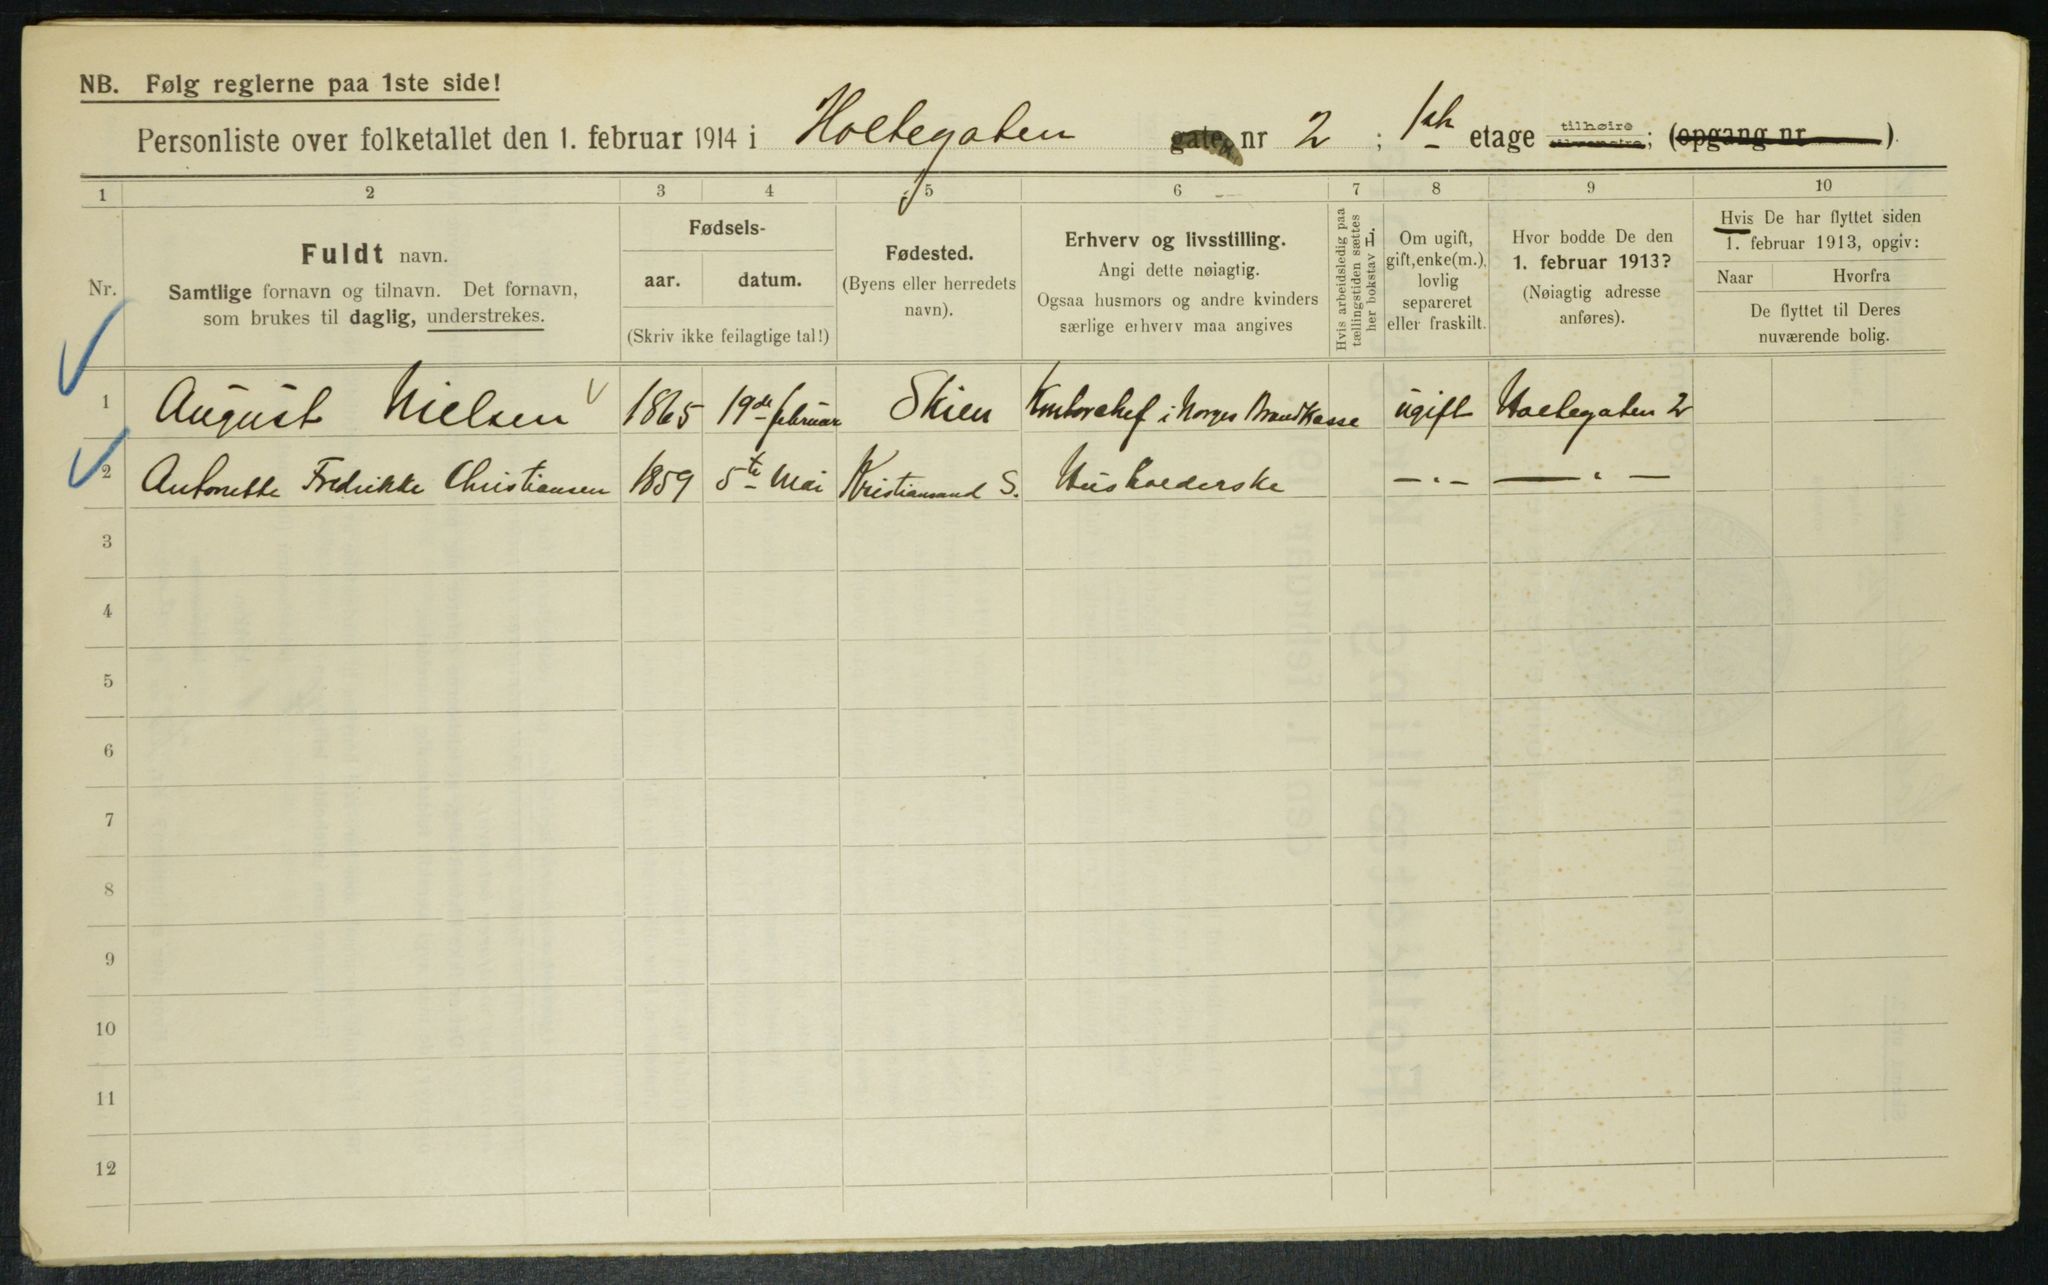 NB. Følg reglerne paa 1ste side!
Personliste over folketallet den 1. februar 1914 i Holtegaten gaten nr 2 ; 1ste etage tilhøire tilvenstre; (opgang nr )
1 2 3 4 5 6 7 8 9 10
Nr.
Fuldt navn.
Samtlige fornavn og tilnavn. Det fornavn,
som brukes til daglig, understrekes.
Fødsels-
aar. datum.
(Skriv ikke feilagtige tal!)
Fødested.
(Byens eller herredets
navn).
Erhverv og livsstilling.
Angi dette nøiagtig.
Ogsaa husmors og andre kvinders
særlige erhverv maa angives
Hvis arbeidsledig paa
tællingstiden sættes
her bokstav A.
Om ugift,
gift, enke(m.),
lovlig
separeret
eller fraskilt.
Hvor bodde De den
1. februar 1913?
(Nøiagtig adresse
anføres).
Hvis De har flyttet siden
1. februar 1913, opgiv:
Naar Hvorfra
De flyttet til Deres
nuværende bolig.
1 August Nielsen 1865 19de februar Skien Kontorchef i Norges Brandkasse ugift Holtegaten 2
2 Antonette Fredrikke Christiansen 1859 5te Mai Kristiansand S. Husholderske — " — — " —
3
4
5
6
7
8
9
10
11
12